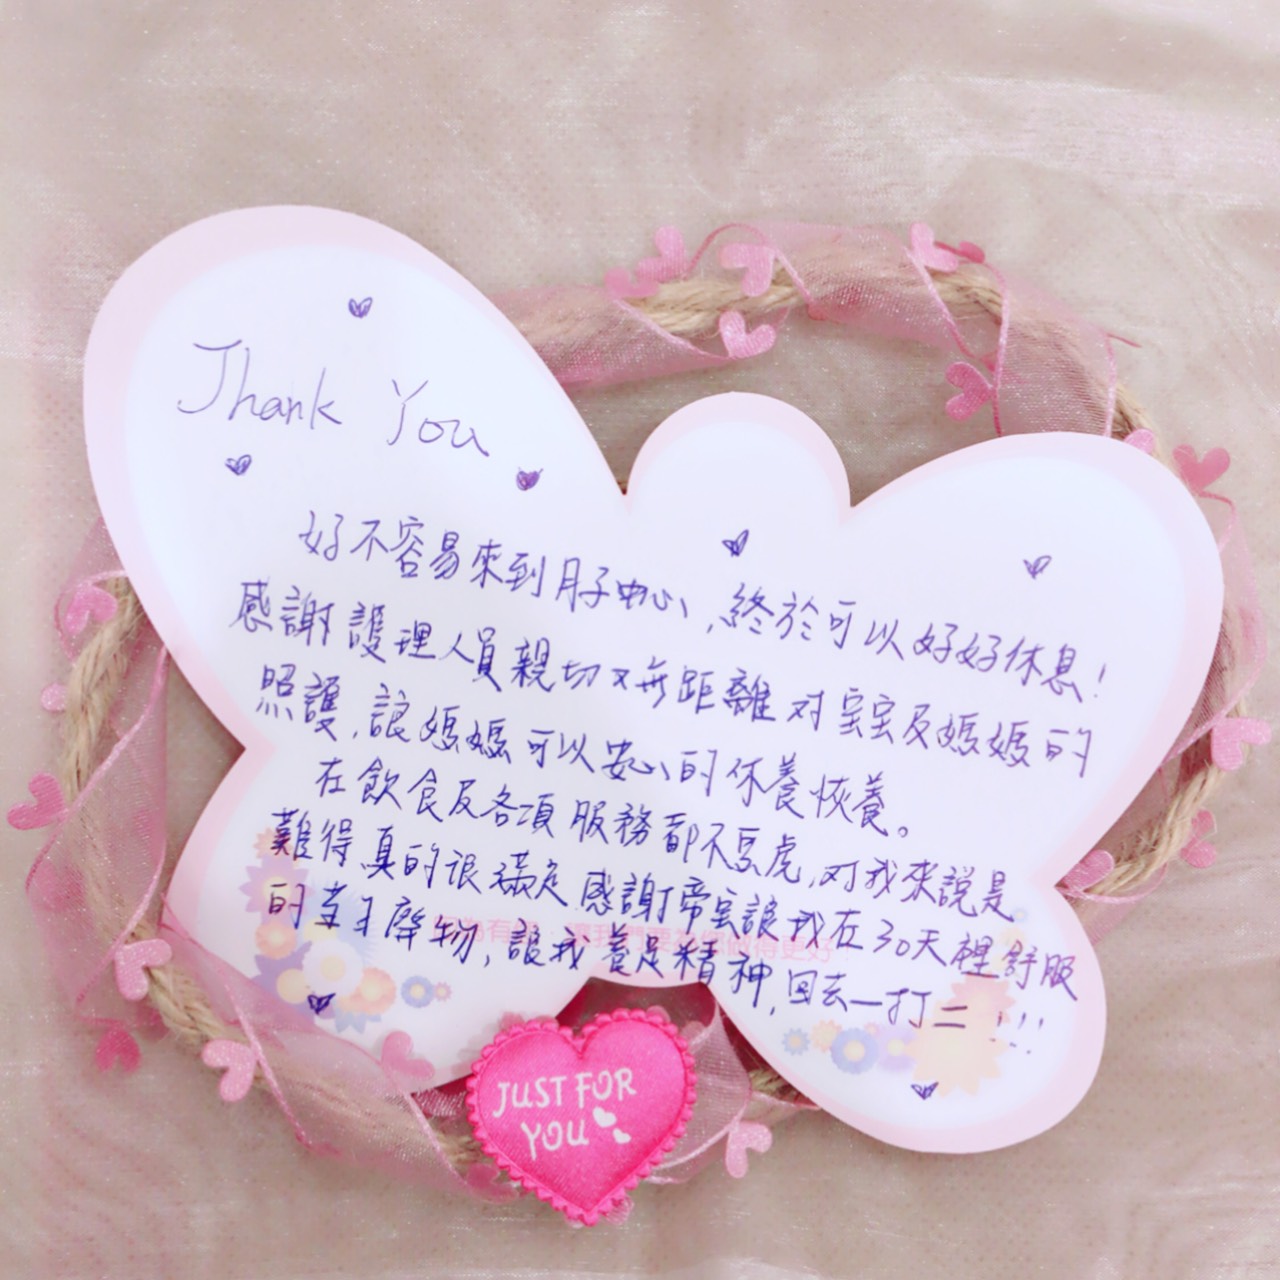 Thank You
好不容易來到月子中心,終於可以好好休息!
感謝護理人員親切又無距離对宝宝及媽媽的
照護,讓媽媽可以安心的休養恢養。
在飲食及各項服務都不馬虎,对我來說是
難得真的很滿足感謝帝宝讓我在30天裡舒服
的当了廢物,讓我養足精神,回去一打二!!!
因為有您,讓我們要為您做得更好
JUST FOR
YOU